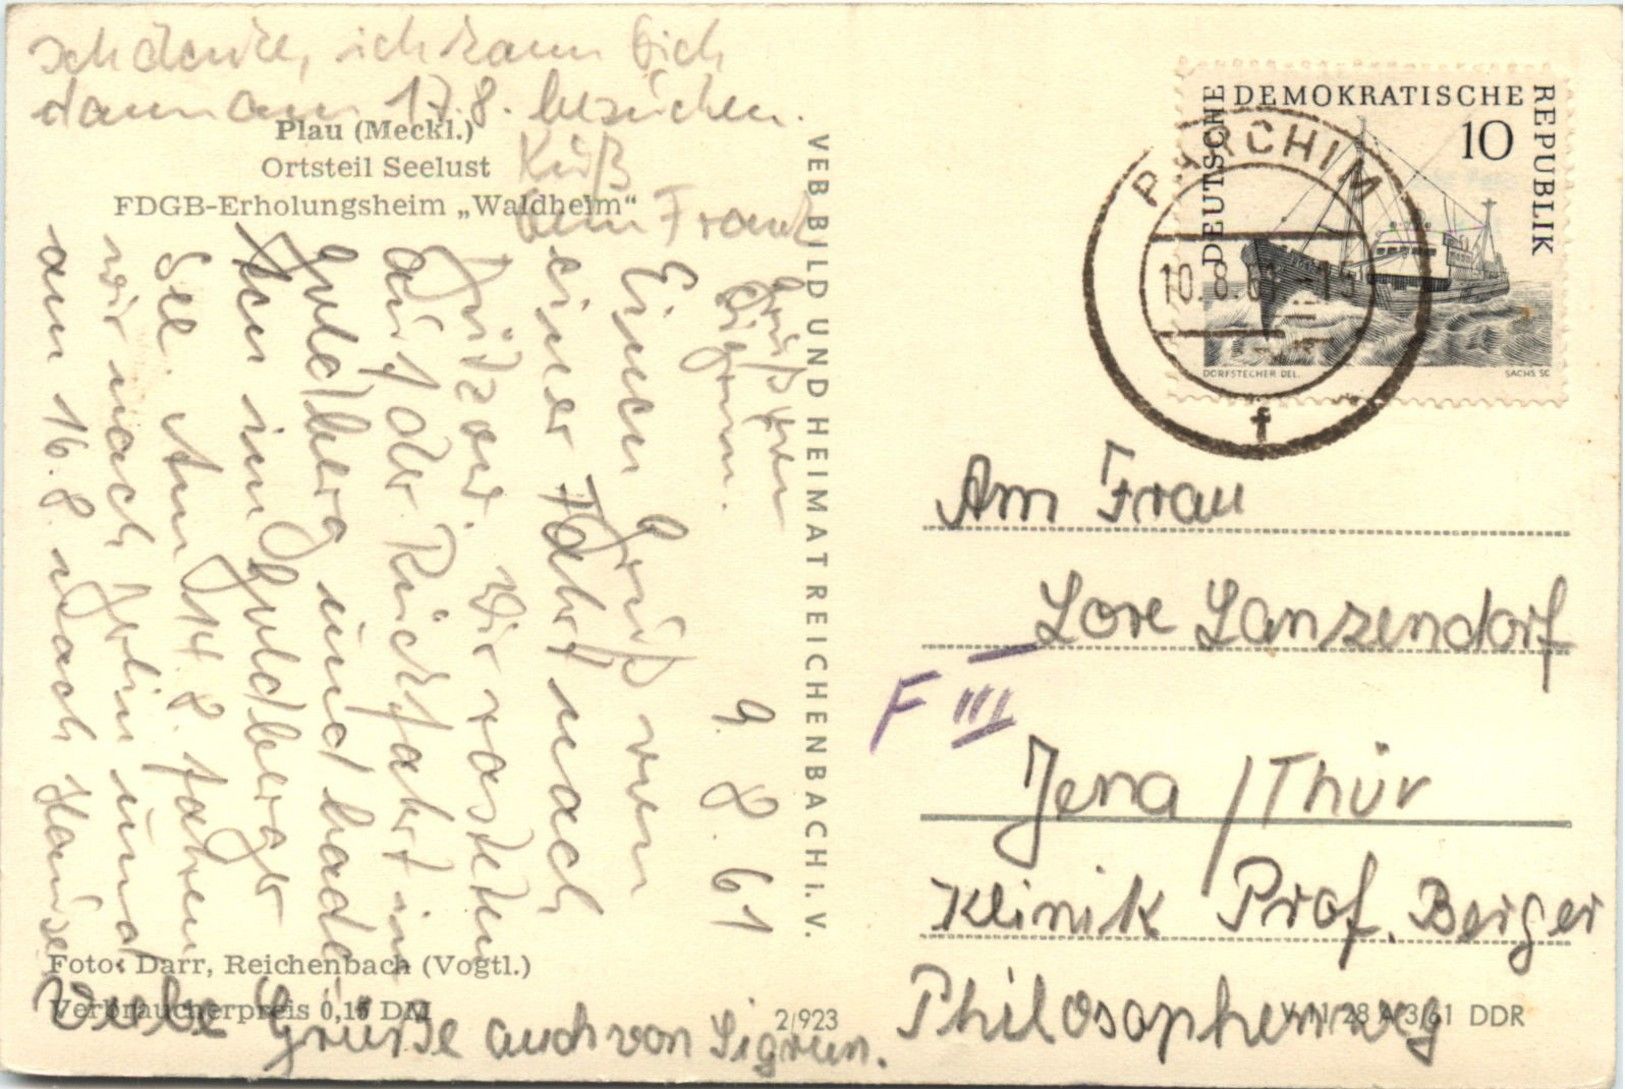 Ich denke, ich kann Dich
dann am 17.8. besuchen.
Kuß
Dein Frank
Plau (Meckl.)
Ortsteil Seelust
FDGB-Erholungsheim „Waldheim“
9. 8. 61
Einen Gruß von
einer Fahrt nach
Wir rasteten
auf der Rückfahrt in
Goldberg und baden
im Goldberger
See. Am 14.8. fahren
wir nach Berlin und
am 16.8. nach Hause
Gruß von
Sigrun.
Foto: Darr, Reichenbach (Vogtl.)
Verbraucherpreis 0,15 DM
Liebe Grüße auch von Sigrun.
2/923
VEB BILD UND HEIMAT REICHENBACH I. V.
DEUTSCHE DEMOKRATISCHE REPUBLIK
10
DORFSTECHER DEL.
SACHS SC
PARCHIM
10.8.61
f
Am Frau
Lore Lanzendorf
F III
Jena / Thür
Klinik Prof. Berger
Philosophenweg
V 11/28 A 3/61 DDR